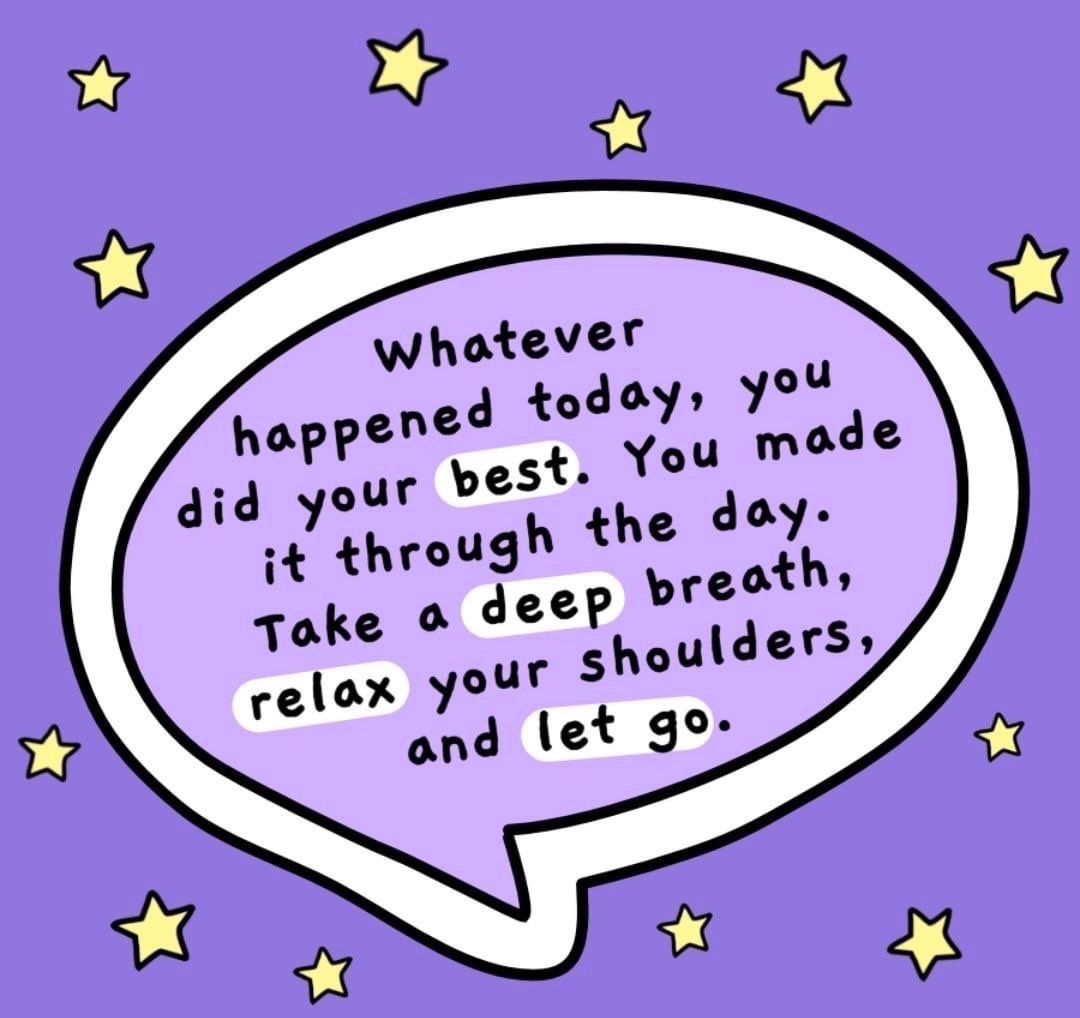 Whatever
happened today, you
did your best. You made
it through the day.
Take a deep breath,
relax your shoulders,
and let go.